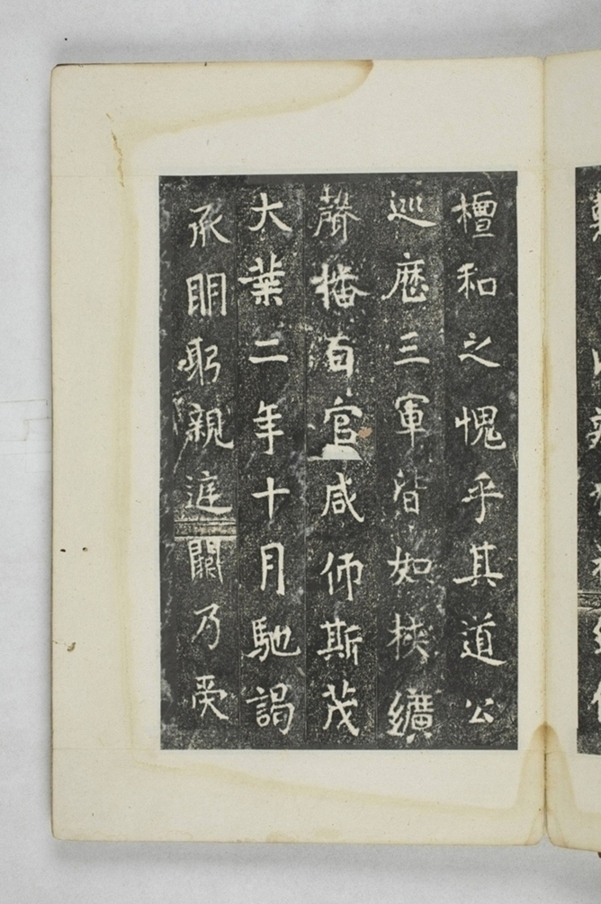 檀和之愧乎其道公
巡歷三軍皆如挾纊
聲播百官咸師斯茂
大業二年十月馳謁
承明躬親遊闕乃受